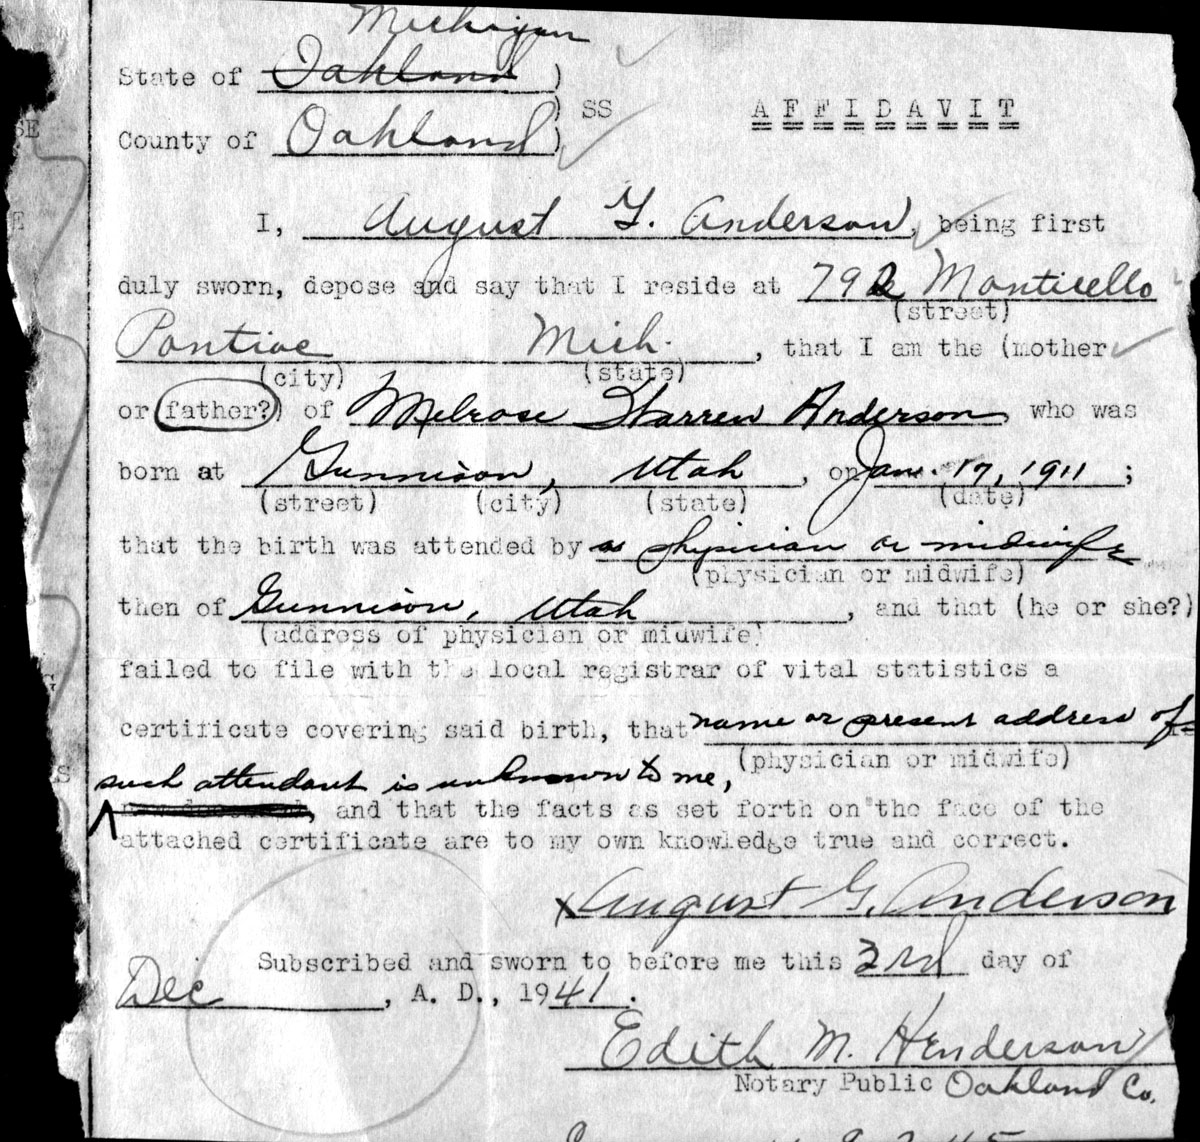 Michigan
State of Oakland )
) SS
AFFIDAVIT
County of Oakland )
I, August G. Anderson, being first
duly sworn, depose and say that I reside at 792 Monticello
(street)
Pontiac Mich. , that I am the (mother
(city) (state)
or (father?) of Melrose Warren Anderson who was
born at Gunnison, Utah , on Jan. 17, 1911 ;
(street) (city) (state) (date)
that the birth was attended by a physician or midwife
(physician or midwife)
then of Gunnison, Utah , and that (he or she?)
(address of physician or midwife)
failed to file with the local registrar of vital statistics a
certificate covering said birth, that name or present address of
(physician or midwife)
such attendant is unknown to me,
, and that the facts as set forth on the face of the
attached certificate are to my own knowledge true and correct.
x August G. Anderson
Subscribed and sworn to before me this 3rd day of
Dec , A. D., 1941.
Edith M. Henderson
Notary Public Oakland Co.